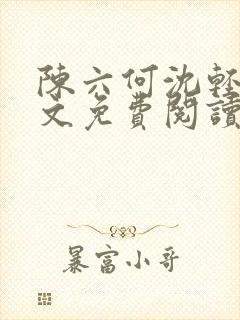 陳六何沈輕
文免費閱讀
暴富小哥